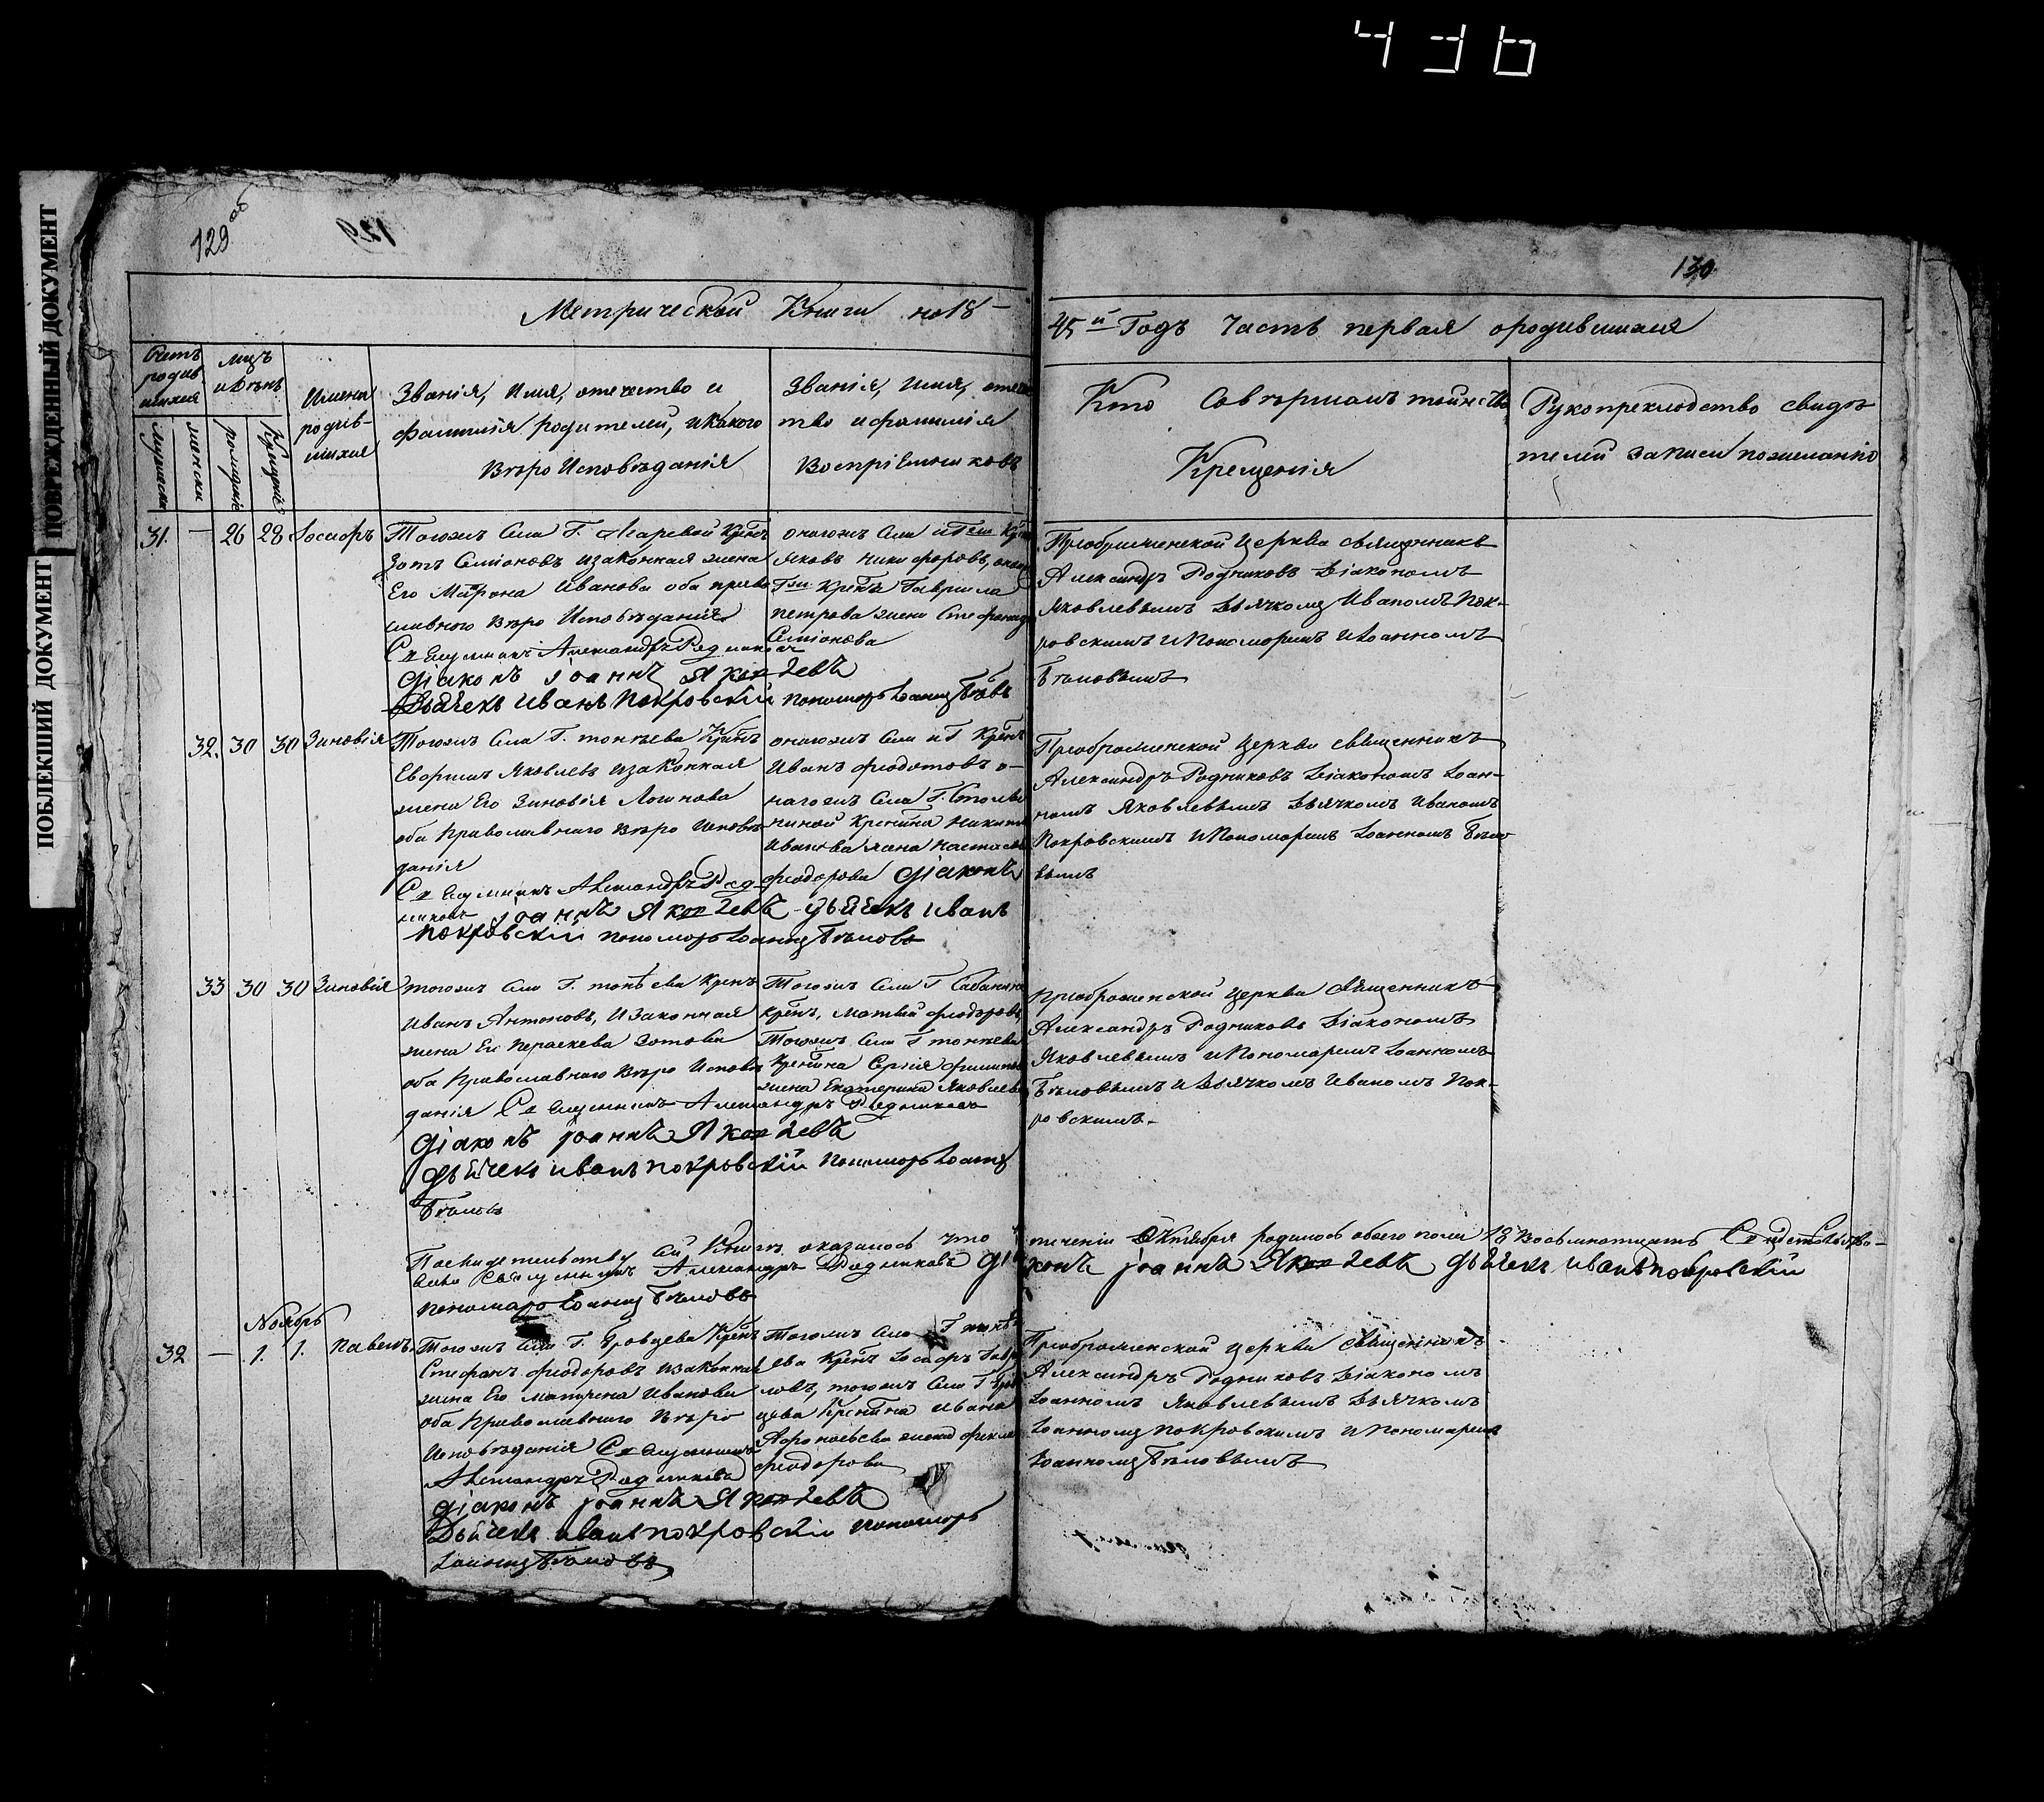 436
ПОВРЕЖДЕННЫЙ ДОКУМЕНТ
ПОБЛЕКШИЙ ДОКУМЕНТ
129 об
129
130
Метрической Книги на 18
45й Годъ Часть первая ородившихся
Счетъ родив шихся
мцъ и день
Имена родив- шихся
Званія, Имя, отечество и
фамилія родителей, икакого
Вѣро Исповѣданія
Званія, имя, отечес
тво ифамилія
Воспріемниковъ
Кто Совѣршалъ тайнство
Крещенія
Рукоприкладство свидѣ
телей записи пожеланію
мужеска
женска
рожденіе
крещеніе
31. — 26 28 Іосифъ
Тогожъ Села Г. Крстнъ
Зотъ Семіоновъ изаконная жена
Его Иванова оба право
славнаго вѣро Исповѣданія
Священникъ Александръ Родниковъ
діаконъ іоаннъ Яковлевъ
Дьячекъ иванъ покровскій пономарь Іоаннъ
оногожъ Села
Яковъ никифоровъ,
Гжи Крстна Гаврила
петрова жена Стефанида
Семіонова
Преображенской Церкви священникъ
Александръ Родниковъ Діакономъ
Яковлевымъ Дьячкомъ Иваномъ Пок-
ровскимъ иПономаремъ Иоанномъ
Бѣловымъ
32. 30 30 Зиновія
Тогожъ Села Г. тонѣева Крстнъ
Яковлевъ изаконная
жена Его Зиновія Логинова
оба Православнаго вѣро Исповѣ
данія
Священникъ Александръ Род-
никовъ іоаннъ Яковлевъ дьячекъ иванъ
покровскій пономарь Іоаннъ Бѣловъ
оногожъ Села Г Крстнъ
Иванъ феодотовъ о-
ногожъ Села Г.
Крстнина Никиты
иванова жена настасья
феодорова діаконъ
Преображенской Церкви священникъ
Александръ Родниковъ Діакономъ Іоан-
номъ Яковлевымъ Дьячкомъ Иваномъ
Покровскимъ иПономаремъ Іоанномъ Бѣло
вымъ
33 30 30 Зиновія
тогожъ Села Г. тонѣева Крстнъ
Иванъ Антоновъ, Изаконная
жена Его Параскева Зотова
оба Православнаго вѣро Исповѣ
данія Священникъ Александръ Родниковъ
діаконъ іоаннъ Яковлевъ
дьячекъ иванъ покровскій Пономарь Іоаннъ
Бѣловъ
Тогожъ Села Г
Крстнъ, матвей феодоровъ,
Тогожъ Села Г тонѣева
Крстнина Сергія
жена Екатерина Яковлева
Преображенской Церкви Священникъ
Александръ Родниковъ Діакономъ
Яковлевымъ иПономаремъ Іоанномъ
Бѣловымъ иДьячкомъ Иваномъ Пок-
ровскимъ.
Посвидетельству сей Книги оказалось что
теченіи Октября родилось обоего пола 18 Восьмнатцать Свидетельство-
вали Священникъ Александръ Родниковъ діа
конъ іоаннъ Яковлевъ дьячекъ иванъ покровскій
пономарь Іоаннъ Бѣловъ
Ноябрь
32 — 1. 1. павелъ.
Тогожъ Села Г. Крстнъ
Стефанъ феодоровъ изаконная
жена Его матрена Иванова
оба Православнаго Вѣро
Исповѣданія Священникъ
Александръ Родниковъ
діаконъ іоаннъ Яковлевъ
Дьячекъ иванъ покровскій пономарь
Іоаннъ Бѣловъ
Тогожъ Села Г тонѣ
ева Крстнъ Іосифъ
ловъ, тогожъ Села Г
цева Крстнина Ивана
жена фекла
феодорова
Преображенской Церкви Священникъ
Александръ Родниковъ Діакономъ
Іоанномъ Яковлевымъ Дьячкомъ
Іоанномъ покровскимъ иПономаремъ
Іоанномъ Бѣловымъ